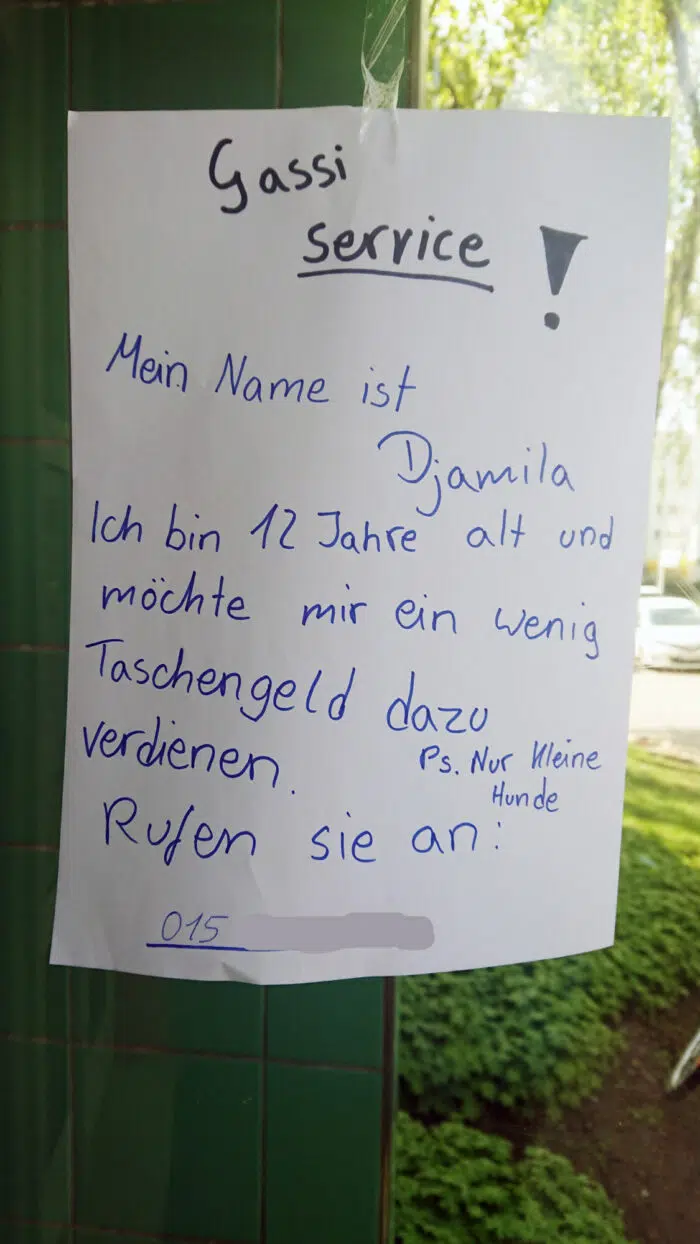 Gassi
service !
Mein Name ist
Djamila
Ich bin 12 Jahre alt und
möchte mir ein wenig
Taschengeld dazu
verdienen.
Ps. Nur Kleine
Hunde
Rufen sie an:
015